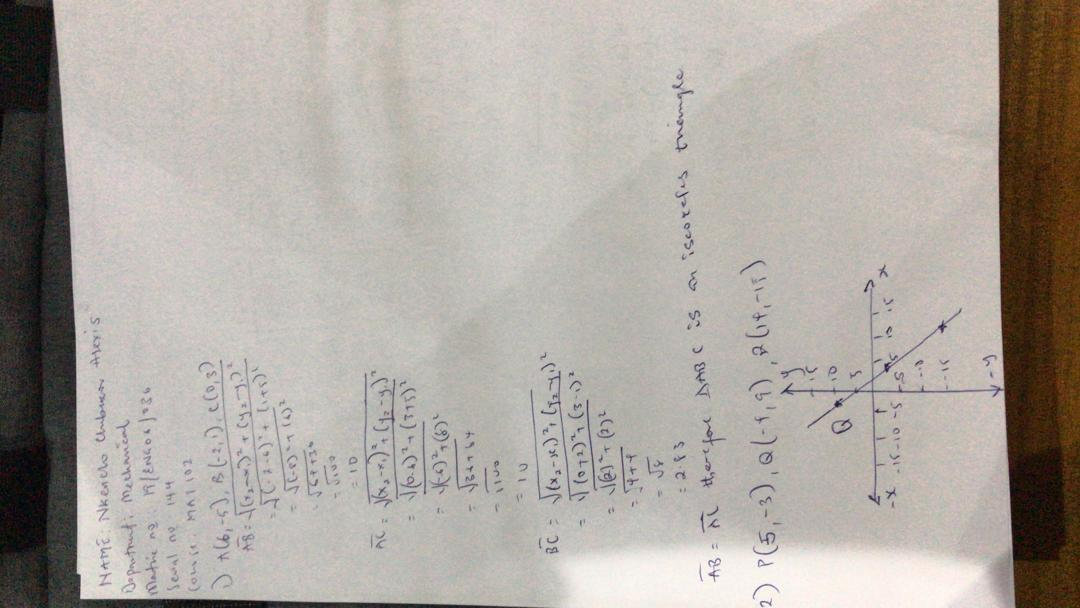 NAME: Nkencho Chibueze Alexis
Department: Mechanical
Matric no: 19/ENG08/036
Serial no: 144
Course: MAT 102
1) A(6,-5), B(-2,1), C(0,3)
AB = √(x₂-x₁)² + (y₂-y₁)²
= √(-2-6)² + (1+5)²
= √(-8)² + (6)²
= √64+36
= √100
= 10
AC = √(x₂-x₁)² + (y₂-y₁)²
= √(0-6)² + (3+5)²
= √(-6)² + (8)²
= √36+64
= √100
= 10
BC = √(x₂-x₁)² + (y₂-y₁)²
= √(0+2)² + (3-1)²
= √(2)² + (2)²
= √4+4
= √8
= 2.83
AB = AC therefore ΔABC is an isosceles triangle
2) P(5,-3), Q(-4,9), R(14,-15)
y
15
10
5
Q
-x -15 -10 -5 5 10 15 x
-5
-10
-15
-y